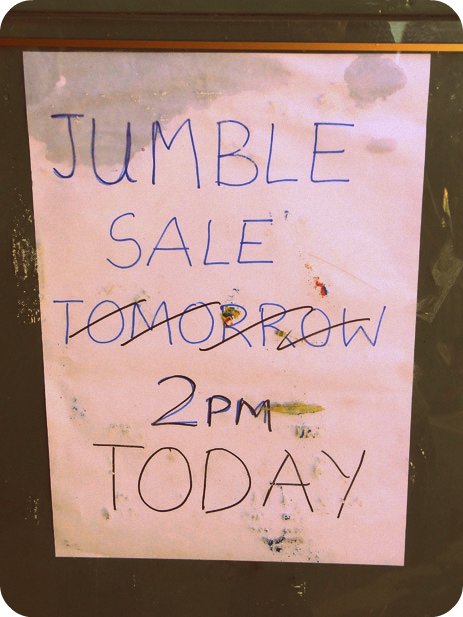 JUMBLE
SALE
TOMORROW
2PM
TODAY